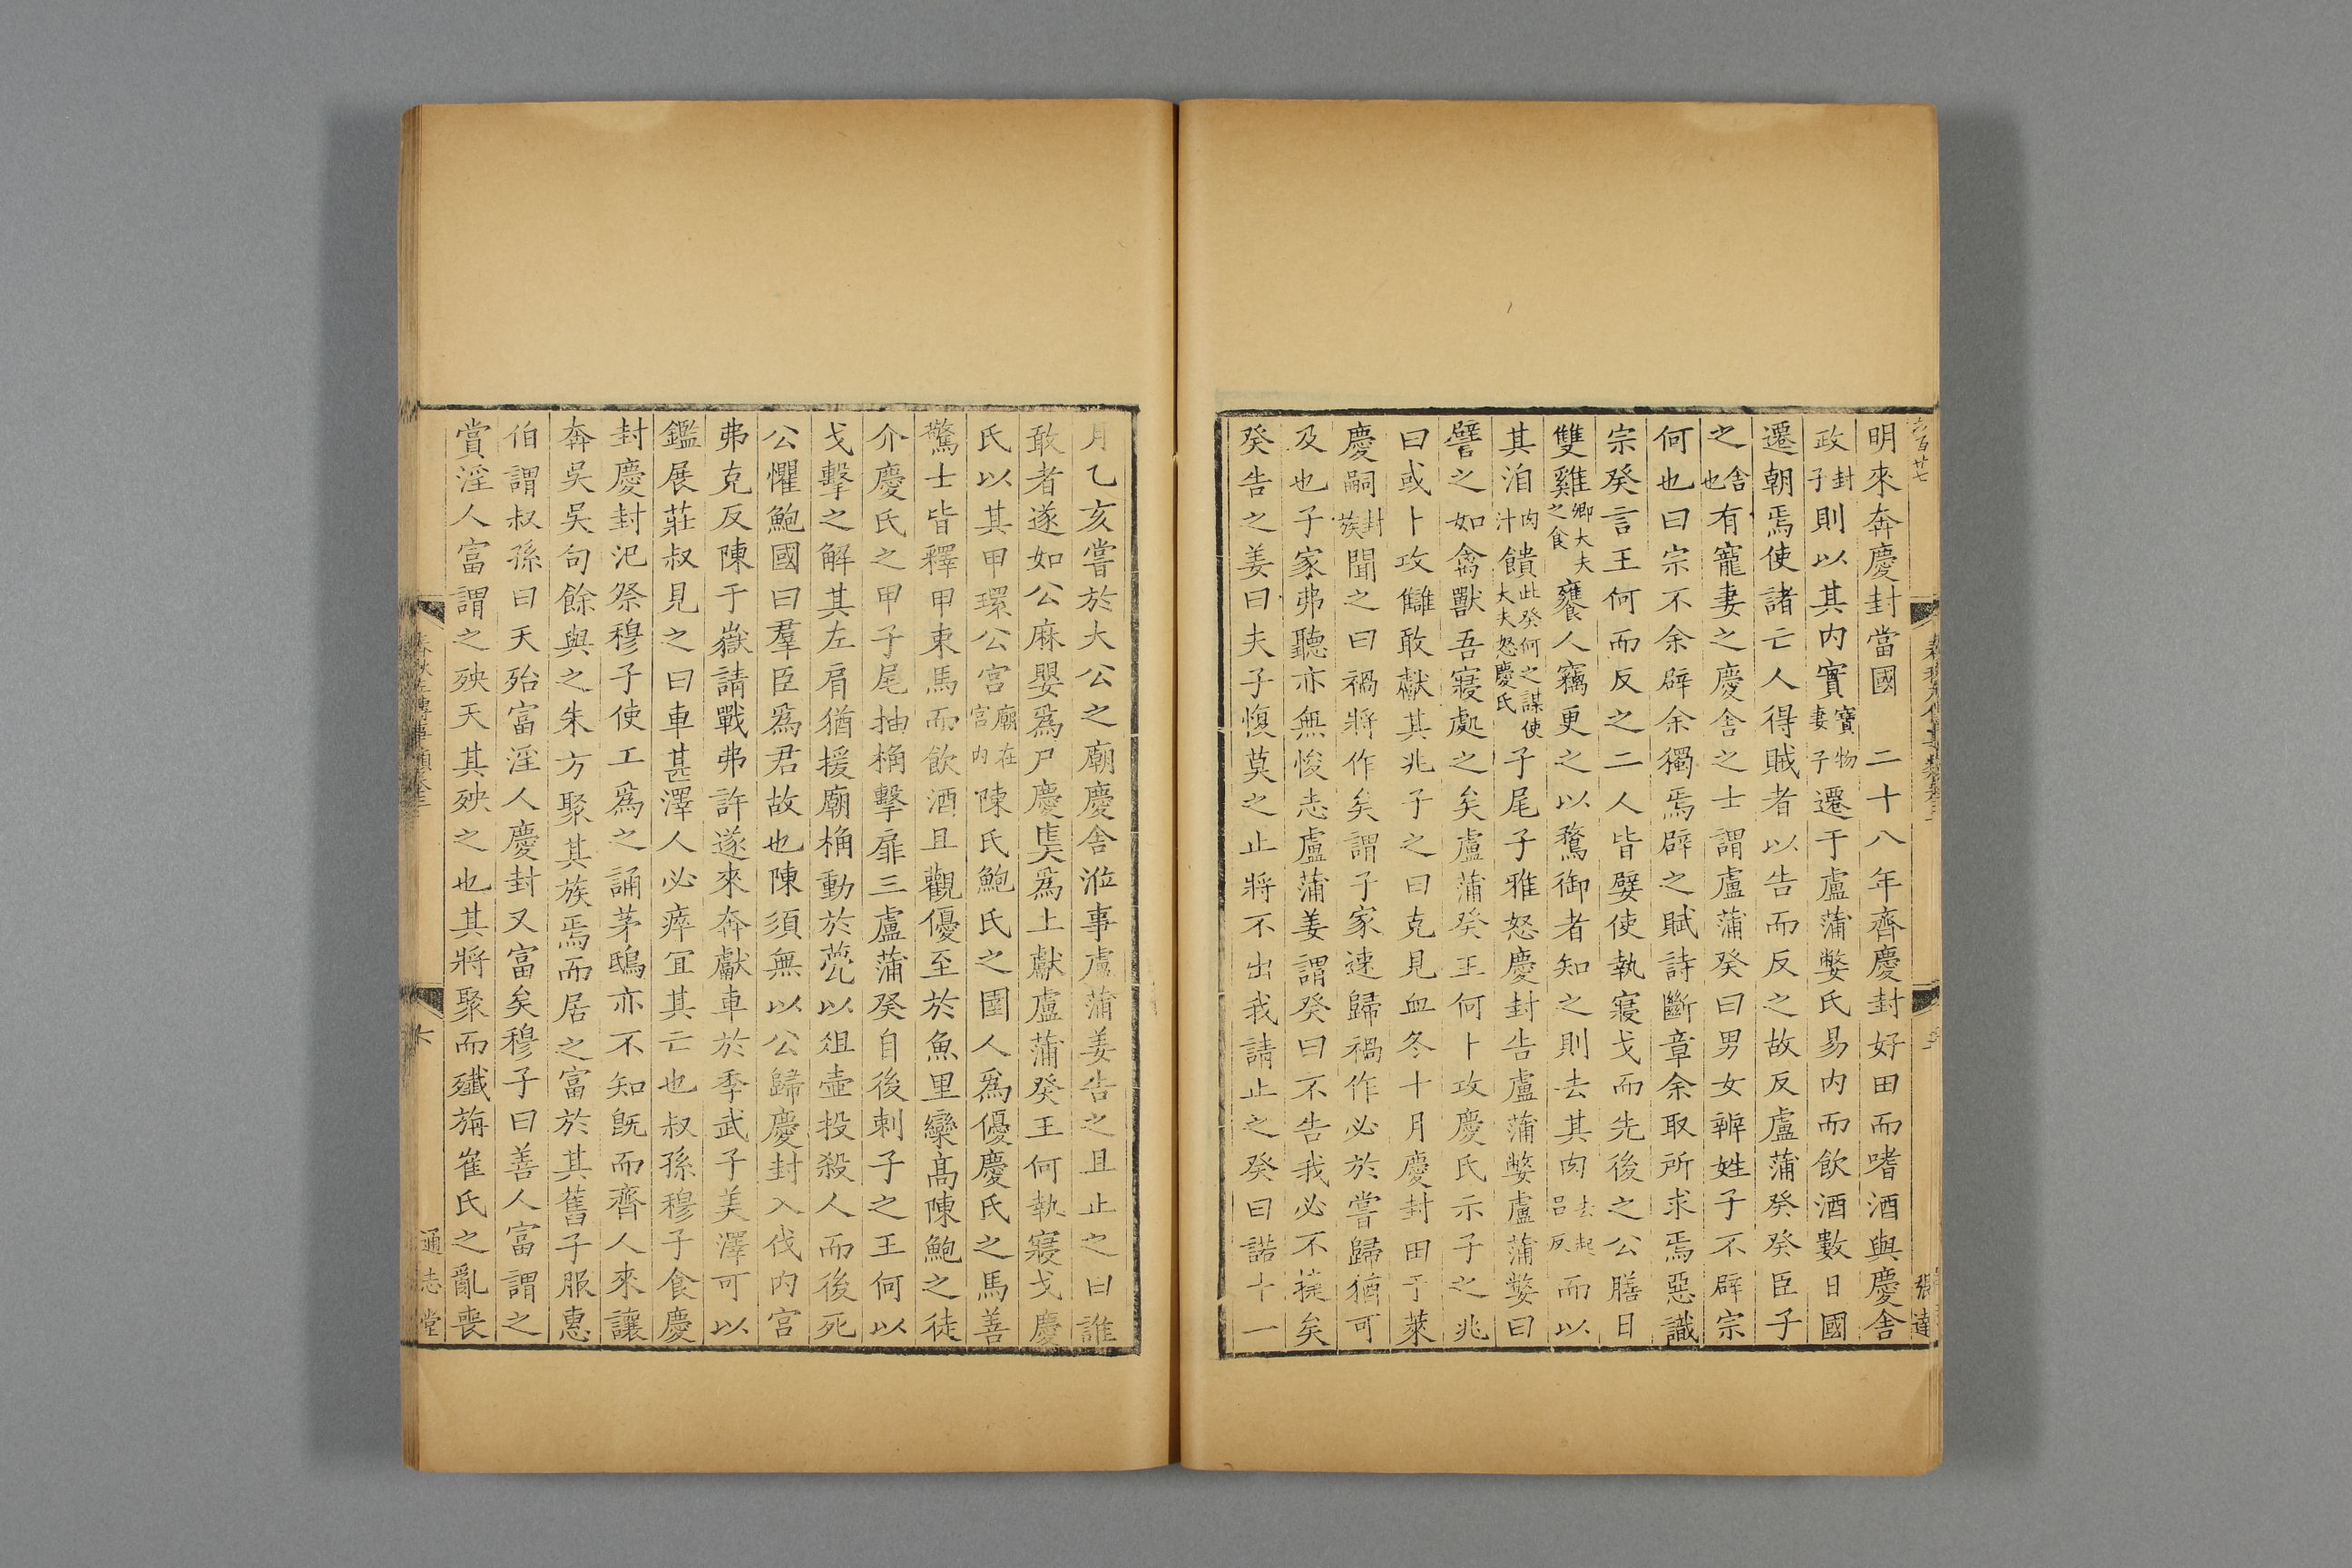 六百廿七
明來奔慶封當國 二十八年齊慶封好田而嗜酒與慶舍
政封子則以其内實寶物妻子遷于盧蒲嫳氏易内而飲酒數日國
遷朝焉使諸亡人得賊者以告而反之故反盧蒲癸癸臣子
之舍也有寵妻之慶舍之士謂盧蒲癸曰男女辨姓子不辟宗
何也曰宗不余辟余獨焉辟之賦詩斷章余取所求焉惡識
宗癸言王何而反之二人皆嬖使執寢戈而先後之公膳日
雙雞卿大夫之食饔人竊更之以鶩御者知之則去其肉去起呂反而以
其洎肉汁饋此癸何之謀使大夫怒慶氏子尾子雅怒慶封告盧蒲嫳盧蒲嫳曰
譬之如禽獸吾寢處之矣盧蒲癸王何卜攻慶氏示子之兆
曰或卜攻讎敢獻其兆子之曰克見血冬十月慶封田于萊
慶嗣封族聞之曰禍將作矣謂子家速歸禍作必於嘗歸猶可
及也子家弗聽亦無悛志盧蒲姜謂癸曰不告我必不㨗矣
癸告之姜曰夫子愎莫之止將不出我請止之癸曰諾十一
張達
月乙亥嘗於大公之廟慶舍涖事盧蒲姜告之且止之曰誰
敢者遂如公麻嬰爲尸慶奊爲上獻盧蒲癸王何執寢戈慶
氏以其甲環公宮廟在宮内陳氏鮑氏之圉人爲優慶氏之馬善
驚士皆釋甲束馬而飲酒且觀優至於魚里欒高陳鮑之徒
介慶氏之甲子尾抽桷擊扉三盧蒲癸自後刺子之王何以
戈擊之解其左肩猶援廟桷動於甍以俎壺投殺人而後死
公懼鮑國曰羣臣爲君故也陳須無以公歸慶封入伐内宮
弗克反陳于嶽請戰弗許遂來奔獻車於季武子美澤可以
鑑展莊叔見之曰車甚澤人必瘁宜其亡也叔孫穆子食慶
封慶封汜祭穆子使工爲之誦茅鴟亦不知旣而齊人來讓
奔吳吳句餘與之朱方聚其族焉而居之富於其舊子服惠
伯謂叔孫曰天殆富淫人慶封又富矣穆子曰善人富謂之
賞淫人富謂之殃天其殃之也其將聚而殲旃崔氏之亂喪
春秋左傳事類卷三
六
通志堂